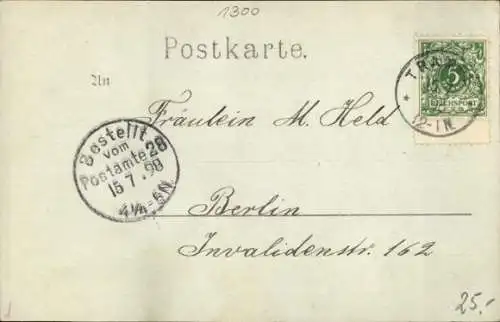 1300
Postkarte.
An
TRA
5
REICHSPOST
12-1N
Fräulein M. Held
Bestellt
vom
Postamte 28
15 7 98
4¼-5N
Berlin
Invalidenstr. 162
25.-